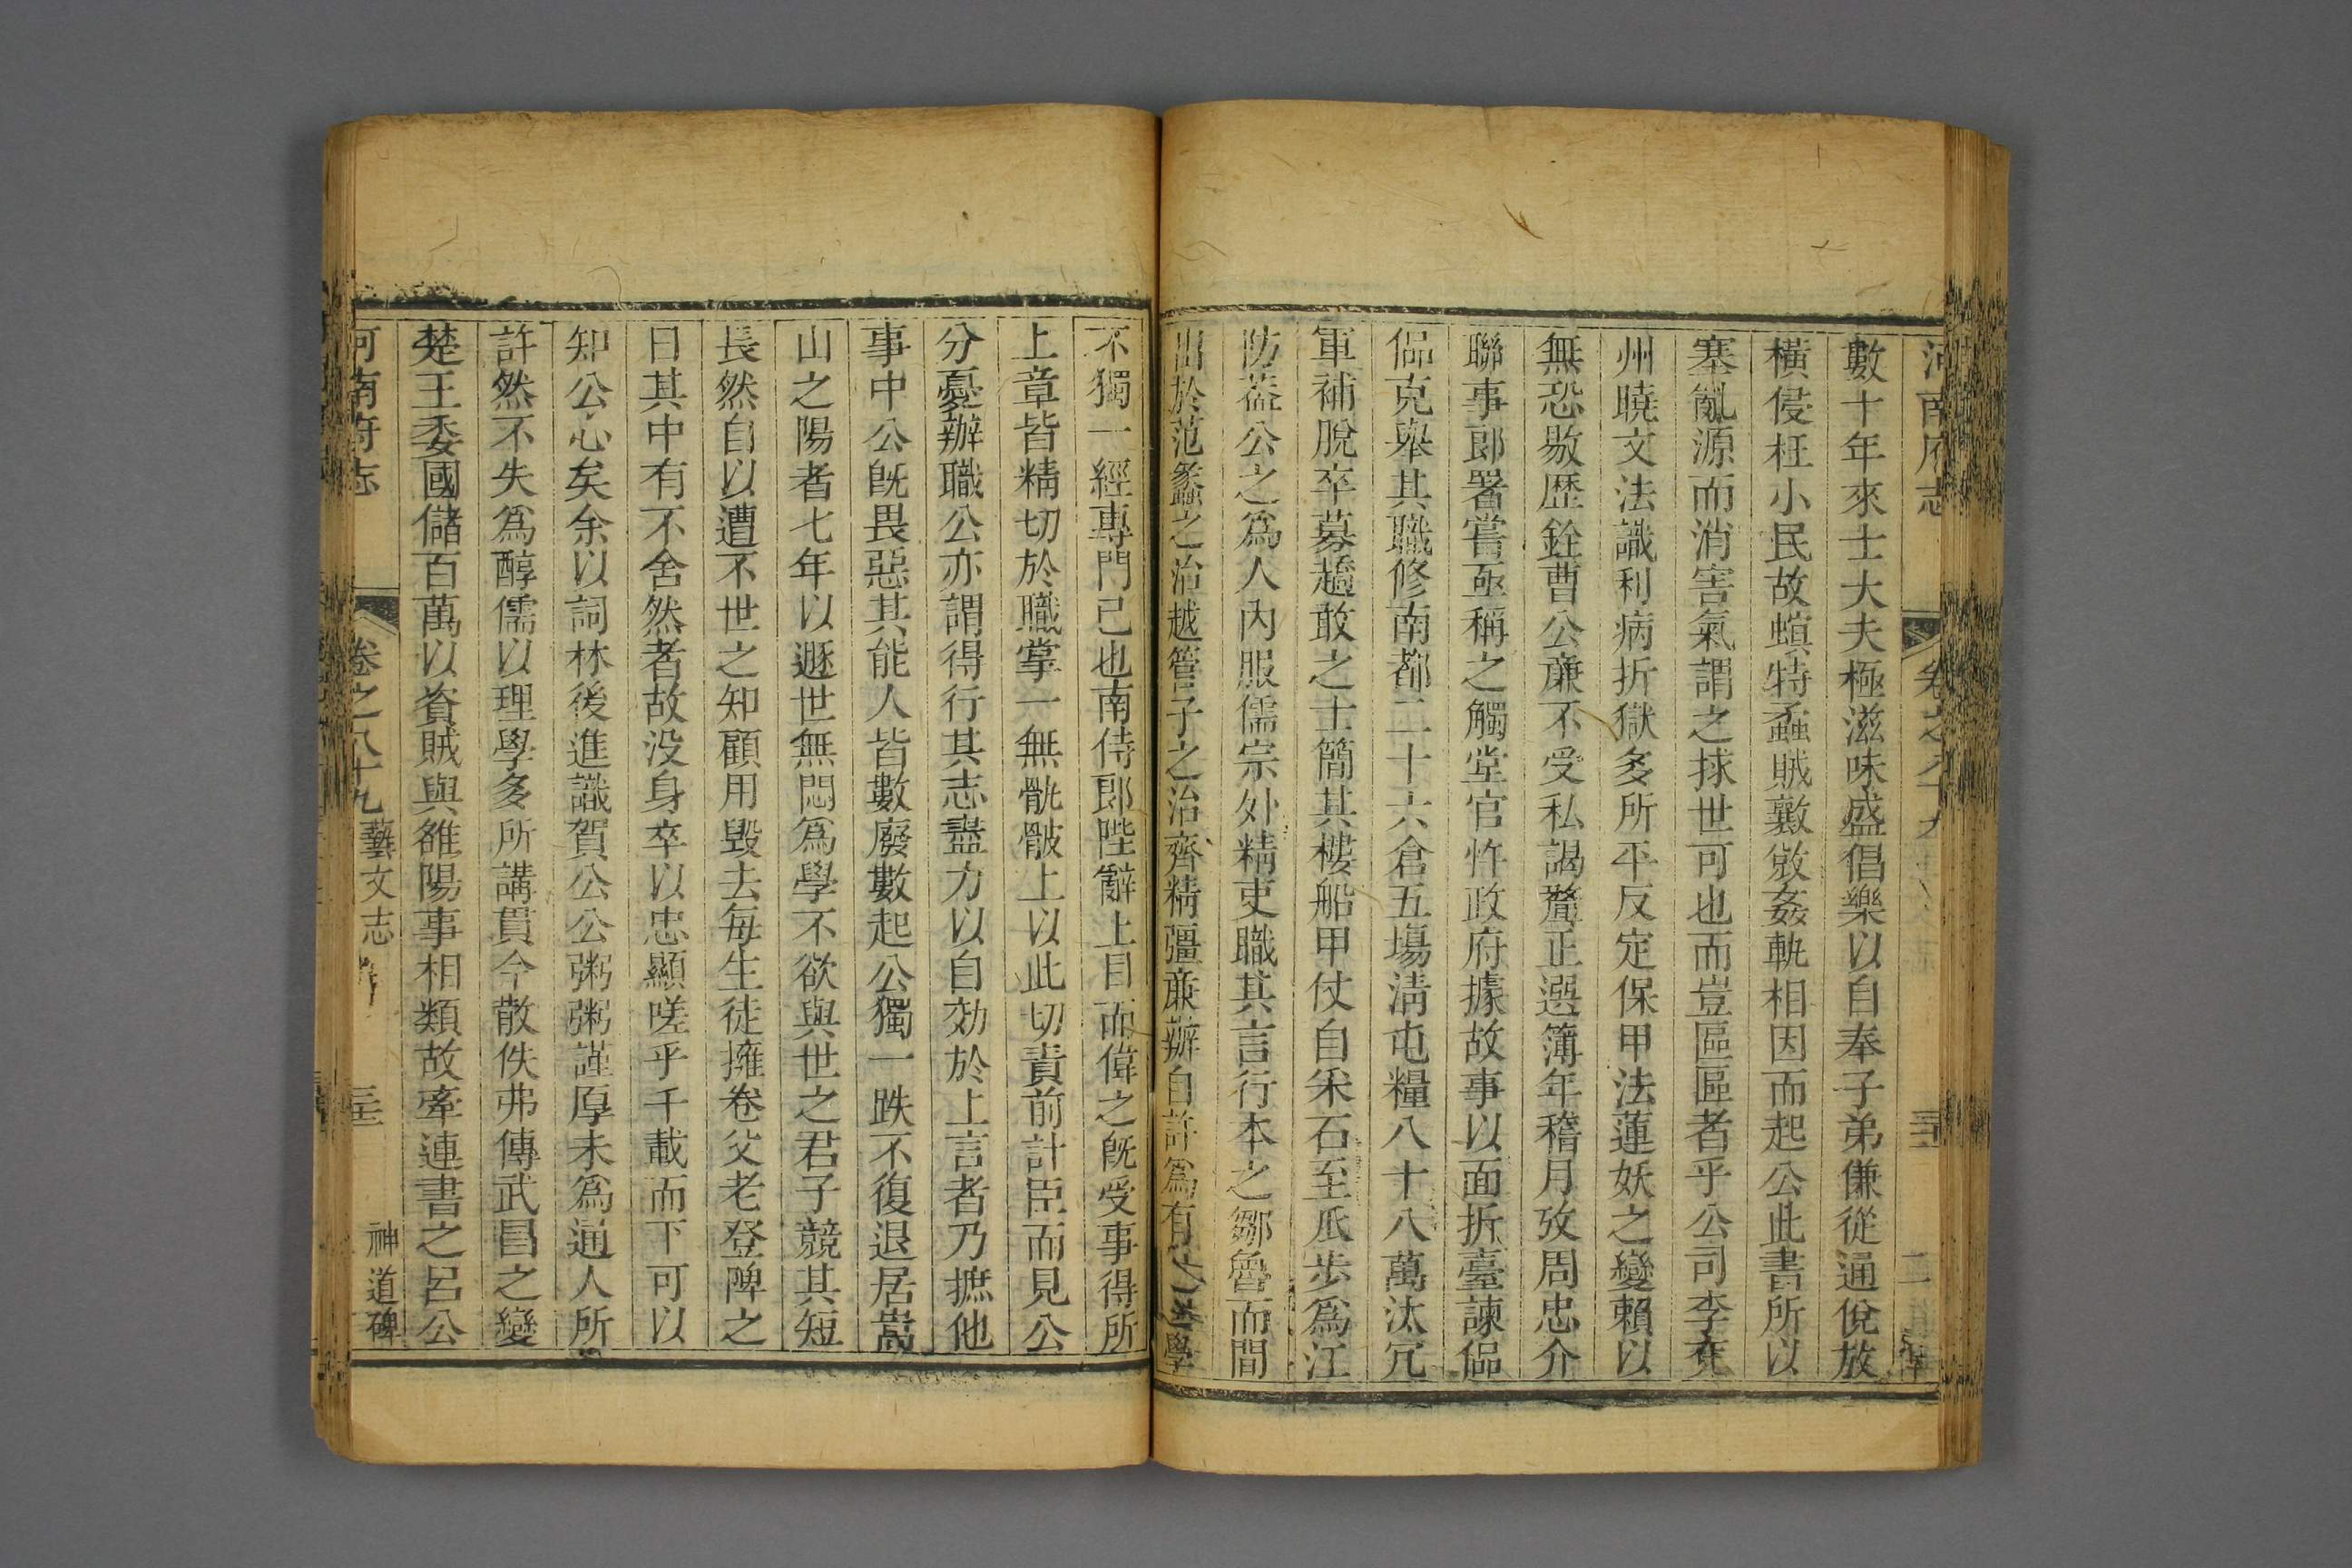 河南府志
卷之八十九
數十年來士大夫極滋味盛倡樂以自奉子弟傔從通侻放
橫侵枉小民故螟特蟊賊蘞斂姦軌相因而起公此書所以
塞亂源而消害氣謂之捄世可也而豈區區者乎公司李兖
州曉文法識利病折獄多所平反定保甲法蓮妖之變賴以
無恐敭歷銓曹公亷不受私謁釐正選簿年稽月攷周忠介
聯事郎署嘗亟稱之觸堂官忤政府據故事以面折臺諫偘
偘克舉其職修南都二十六倉五塲淸屯糧八十八萬汰冗
軍補脫卒募趫敢之士簡其樓船甲仗自采石至瓜步爲江
防葢公之爲人內服儒宗外精吏職其言行本之鄒魯而間
出於范蠡之治越管子之治齊精彊亷辦自許爲有學
不獨一經專門已也南侍郎陛辭上目而偉之旣受事得所
上章皆精切於職掌一無骫骳上以此切責前計臣而見公
分憂辦職公亦謂得行其志盡力以自効於上言者乃摭他
事中公旣畏惡其能人皆數廢數起公獨一跌不復退居嵩
山之陽者七年以遯世無悶爲學不欲與世之君子競其短
長然自以遭不世之知顧用毀去每生徒擁卷父老登陴之
日其中有不舍然者故没身卒以忠顯嗟乎千載而下可以
知公心矣余以詞林後進識賀公公粥粥謹厚未爲通人所
許然不失爲醇儒以理學多所講貫今散佚弗傳武昌之變
楚王委國儲百萬以資賊與雒陽事相類故牽連書之呂公
河南府志
卷之八十九
藝文志
神道碑